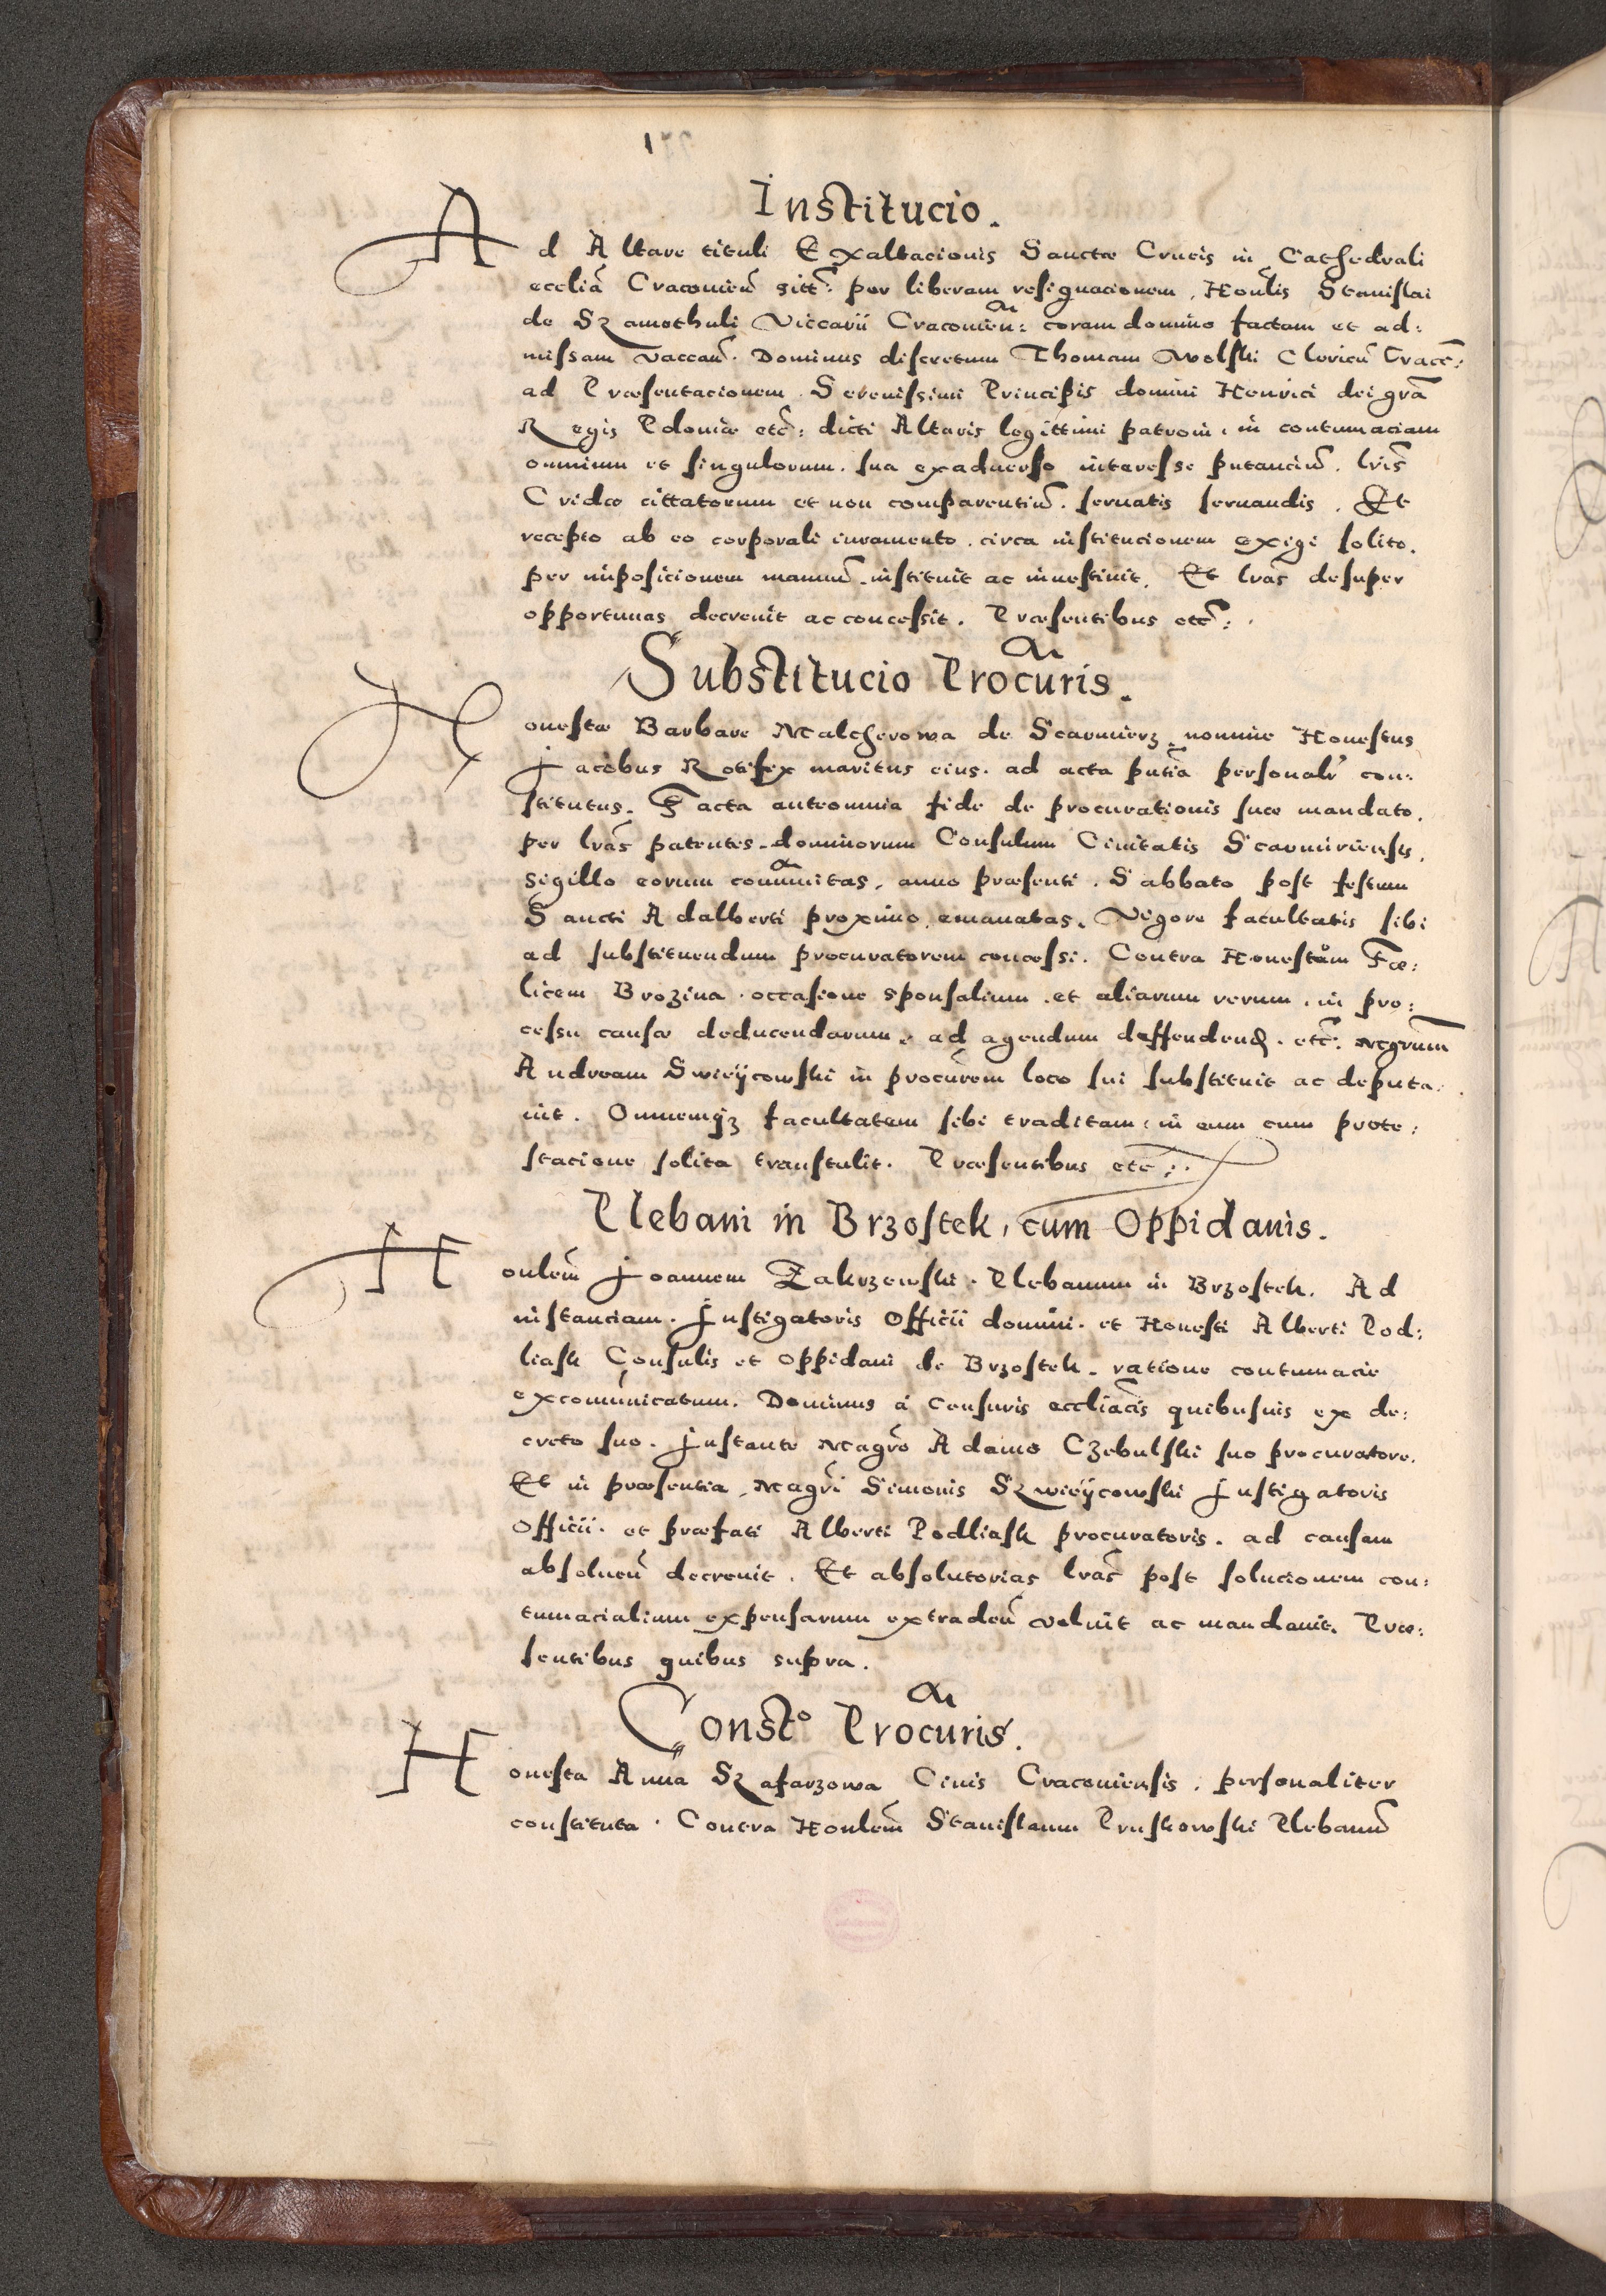 Institucio.
Ad Altare tituli Exaltacionis Sanctæ Crucis in Cathedrali
ecclia͂ Cracouieñ sitt: per liberam resignacionem, Honlis Stanislai
de Szamothuli Viccarii Cracouieñ: coram domino factam et ad:
missam vaccañ. Dominus discretum Thomam Wolski Clericũ Cracc:
ad Præsentacionem Serenissimi Principis domini Henrici dei gra͂
Regis Poloniæ etc: dicti Altaris legittimi patroni, in contumaciam
omnium et singulorum, sua exaduerso interesse putanciũ, lris
Cridæ cittatorum et non comparentiũ. seruatis seruandis. Et
recepto ab eo corporali iuramento, circa institucionem exigi solito.
per imposicionem manuũ instituit ac inuestiuit. Et lras desuper
opportunas decreuit ac concessit. Præsentibus etc:.
Substitucio Procuris.
Honestæ Barbare Malcherowa de Scarmierz nomine Honestus
Jacobus Rotifex maritus eius. ad acta pn̄tia personalr con:
stitutus. Facta anteomnia fide de procurationis suæ mandato.
per lras patentes dominorum Consulum Ciuitatis Scarmiriensis,
sigillo eorum com̄unitas, anno præsenti. Sabbato post festum
Sancti Adalberti proximo, emanatas. Vigore facultatis sibi
ad substituendum procuratorem concessi. Contra Honestum Fœ:
licem Brozina. occasione sponsalium, et aliarum rerum, in pro:
cessu causæ deducendarum, ad agendum deffendend. etc. Mgrum
Andream Swieÿcowski in procurem loco sui substituit ac deputa:
uit. Omnemqз facultatem sibi traditam, in eum cum prote:
stacione solita transtulit. Præsentibus etc:.
Plebani in Brzostek, cum Oppidanis.
Honlem Joannem Zakrzewski. Plebanum in Brzostek. Ad
instanciam. Instigatoris Officii domini. et Honesti Alberti Pod:
liask Consulis et Oppidani de Brzostek. ratione contumacie
excom̄unicatum. Dominus á Censuris eccliacis quibusuis ex de:
creto suo. Instante Magro Adamo Czebulski suo procuratore.
Et in præsentia, Magri Simonis Szwieÿcowski Instigatoris
Officii. et præfati Alberti Podliask procuratoris. ad causam
absolueñ decreuit. Et absolutorias lras post solucionem con:
tumacialium expensarum extradeñ voluit ac mandauit. Præ:
sentibus quibus supra.
Constᵒ Procuris.
Honesta Anna Szafarzowa Ciuis Cracouiensis, personaliter
constituta. Contra Honlem Stanislaum Pruskowski Plebanũ